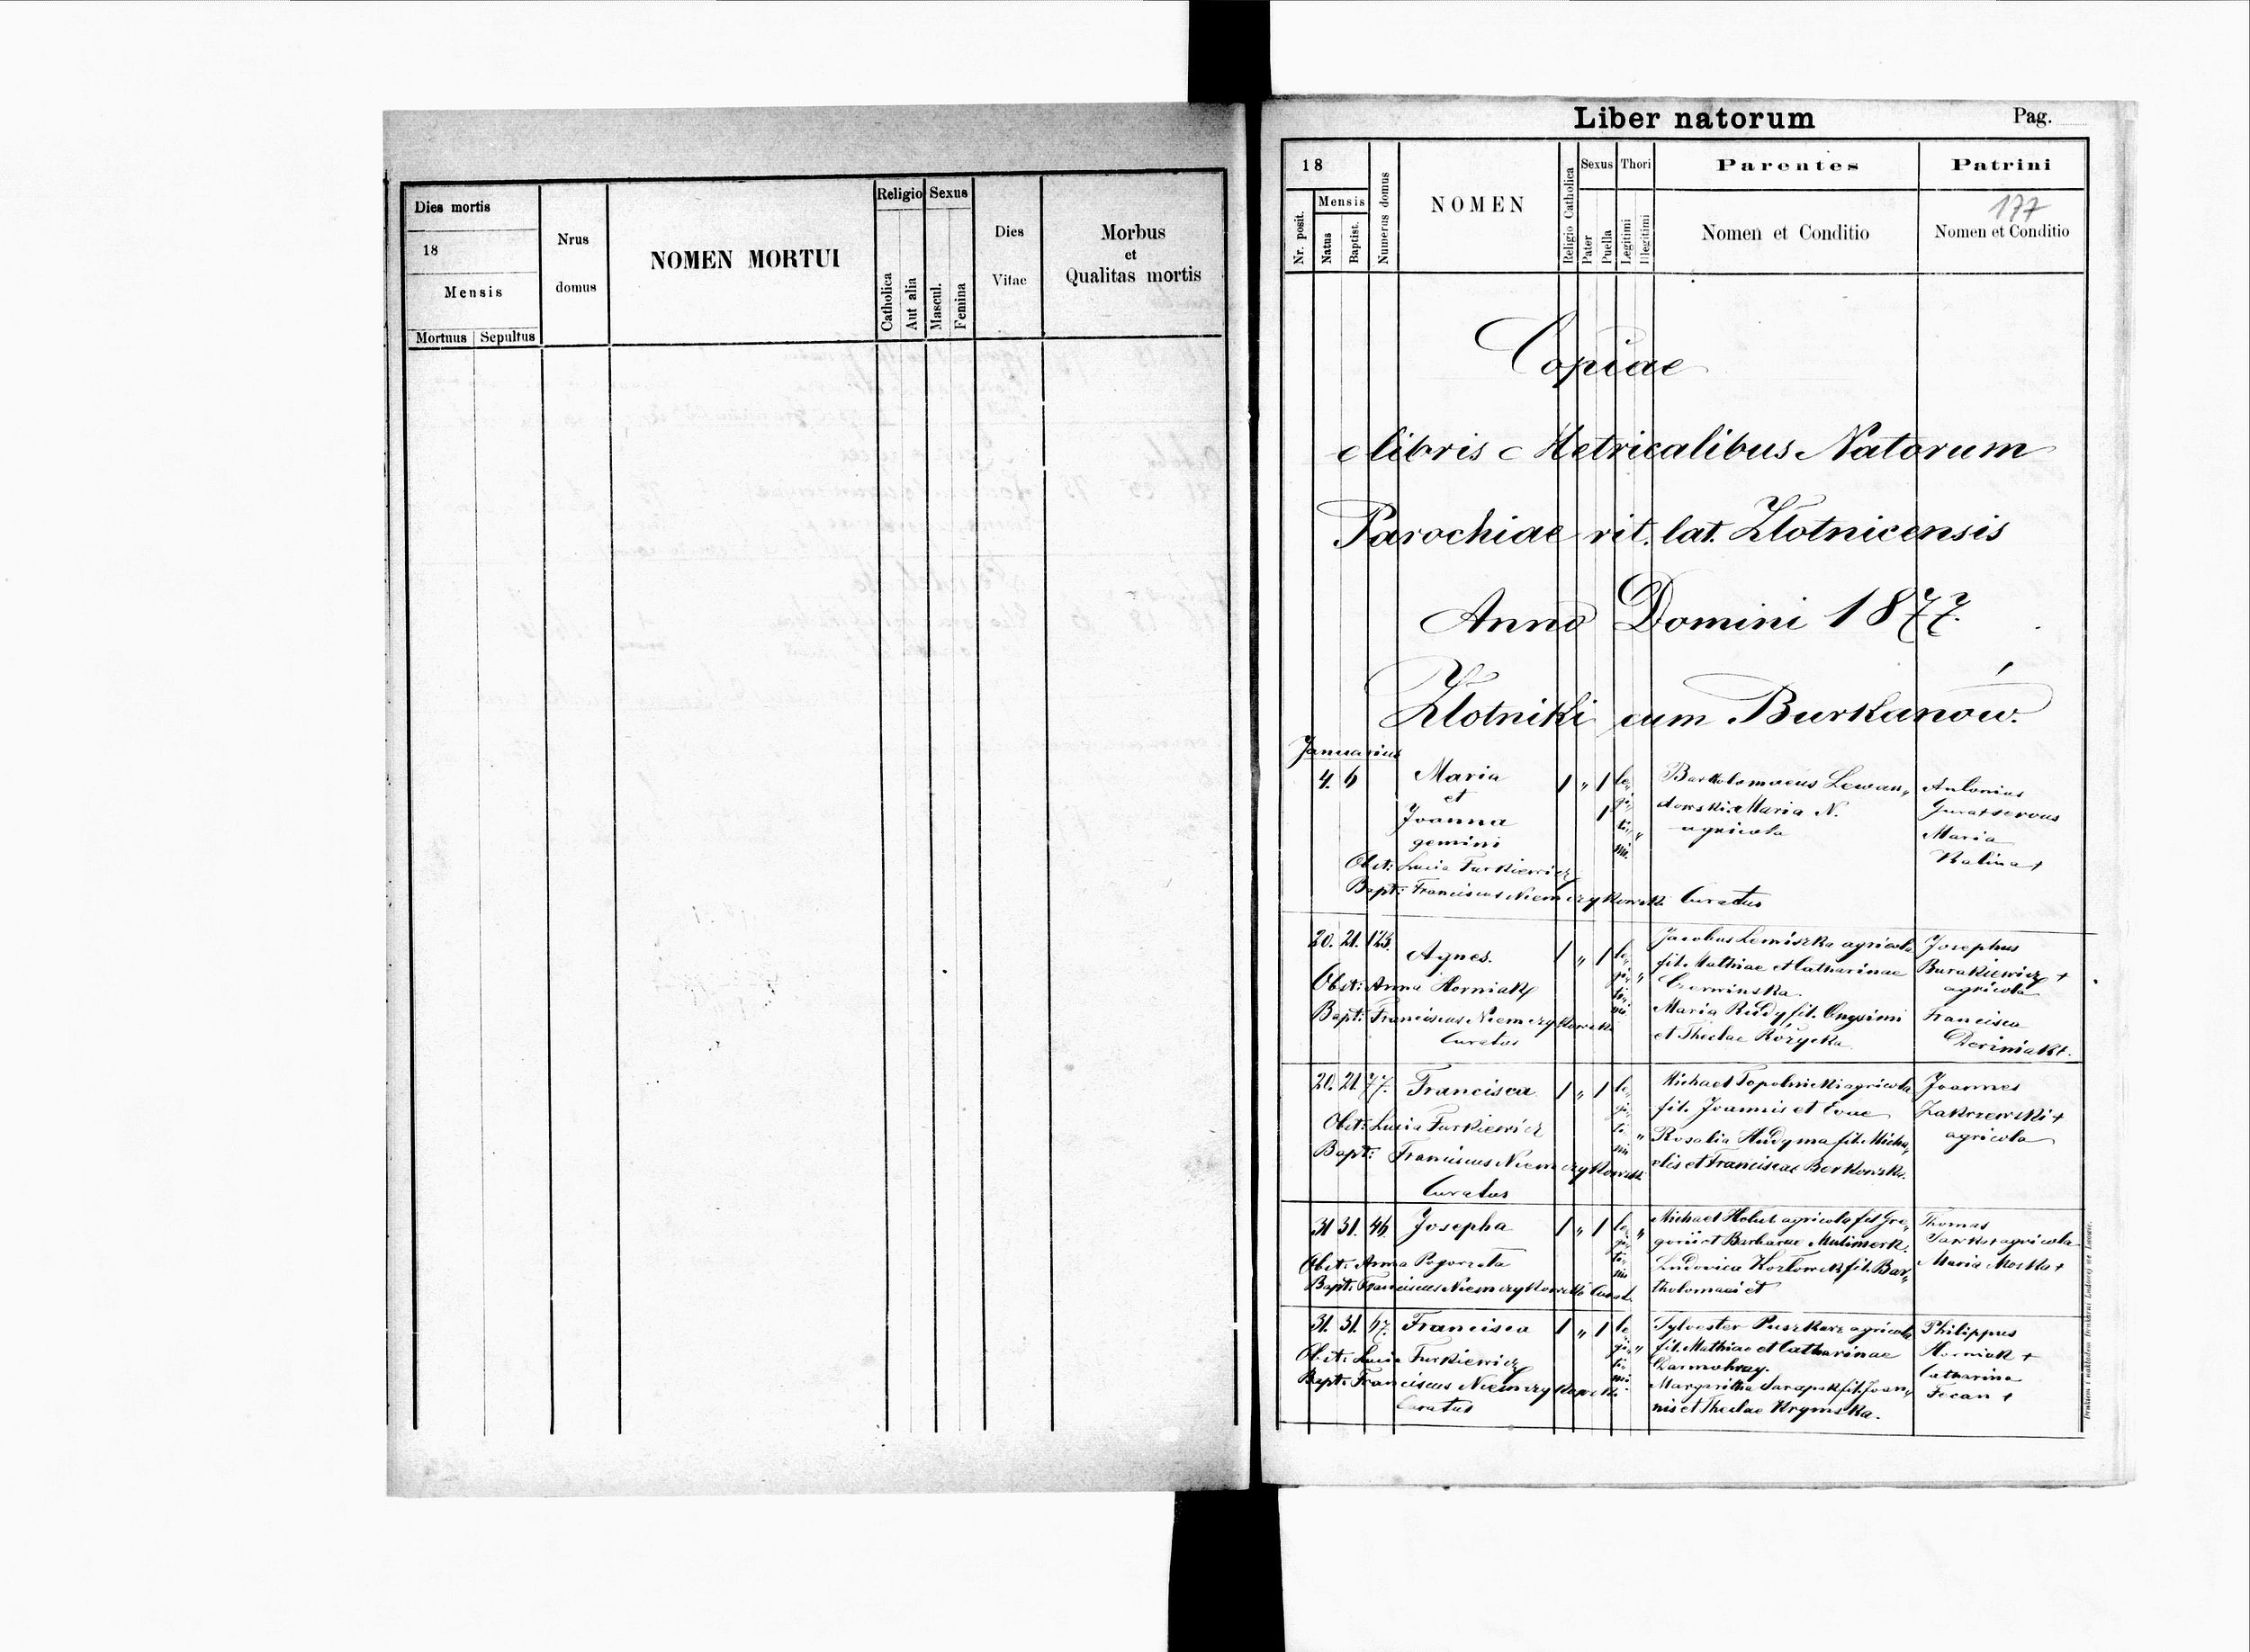 Dies mortis
18
Mensis
Mortuus Sepultus
Nrus
domus
NOMEN MORTUI
Religio Sexus
Catholica
Aut alia
Mascul.
Femina
Dies
Vitae
Morbus
et
Qualitas mortis
Liber natorum Pag.
18
Nr. posit.
Mensis
Natus
Baptist.
Numerus domus
NOMEN
Religio Catholica
Sexus Thori
Pater
Puella
Legitimi
Illegitimi
Parentes
Nomen et Conditio
Patrini
177
Nomen et Conditio
Copiae
e libris Metricalibus Natorum
Parochiae rit. lat. Złotnicensis
Anno Domini 1877.
Złotniki cum Burkanów.
Januarius
4. 6 Maria 1 " 1
et
Joanna 1
gemini
legitimi "
Bartholomaeus Lewan„
dowski et Maria N.
agricola
Antonius
Maria
Kalina +
Obst: Lucia Turkiewicz
Bapt: Franciscus Niemczykowski Curatus
20. 21. 123. Agnes. 1 " 1
legitimi "
Jacobus Lemiszka agricola
fil. Mathiae et Catharinae
Czerwinska.
Maria Rudy fil. Onysimi
et Theclae Różycka
Josephus
Burakiewicz +
agricola
Francisca
+.
Obst: Anna Horniak
Bapt: Franciscus Niemczykowski
Curatus
20. 21. 77. Francisca 1 " 1
legitimi "
Michael Topolnicki agricola
fil. Joannis et Evae
Rosalia Hudyma fil. Micha„
elis et Franciscae Borkowska.
Joannes
Zakrzewski +
agricola
Obst: Lucia Turkiewicz
Bapt: Franciscus Niemczykowski
Curatus
31 31. 46. Josepha 1 " 1
legitimi "
Michael Holub agricola fil Gre„
gorii et Barbarae
Ludovica Kozłowsk fil. Bar„
tholomaei et
Thomas
agricola
Maria Mosko +
Obst: Anna Pogorzeła
Bapt: Franciscus Niemczykowski Curat.
31. 31. 47. Francisca 1 " 1
legitimi "
Sylvester Puszkarz agricola
fil. Mathiae et Catharinae
Margaritha fil. Joan„
nis et Theclae Krymska.
Philippus
Horniak +
Catharina
Fecan +
Obst: Lucia Turkiewicz
Bapt: Franciscus Niemczykowski
Curatus